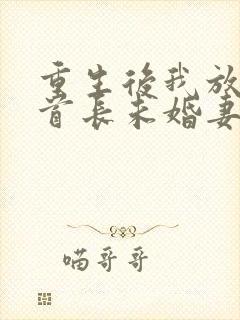 重生後我放
首長未婚妻
喵哥哥